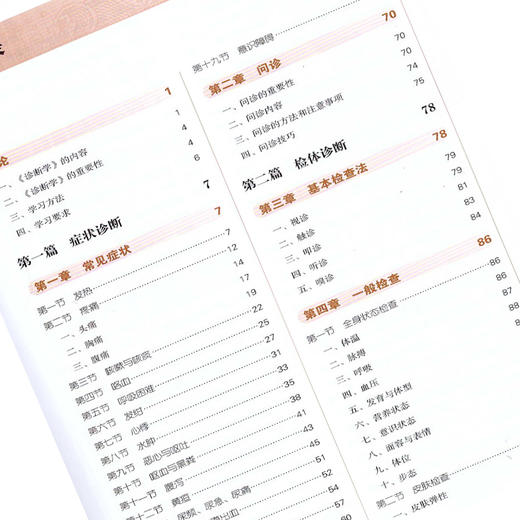 论 1
一、《诊断学》的内容 1
二、《诊断学》的重要性 4
三、学习方法 4
四、学习要求 6
第一篇 症状诊断 7
第一章 常见症状 7
第一节 发热 7
第二节 疼痛 12
一、头痛 14
二、胸痛 17
三、腹痛 19
第三节 咳嗽与咳痰 22
第四节 咯血 25
第五节 呼吸困难 27
第六节 发绀 31
第七节 心悸 33
第八节 水肿 35
第九节 恶心与呕吐 38
第十节 呕血与黑粪 41
第十一节 腹泻 45
第十二节 黄疸 47
尿频、尿急、尿痛 50
52
54
60
62
64
第十九节 意识障碍 70
第二章 问诊 70
一、问诊的重要性 70
二、问诊内容 70
三、问诊的方法和注意事项 74
四、问诊技巧 75
第二篇 检体诊断 78
第三章 基本检查法 78
一、视诊 79
二、触诊 79
三、叩诊 81
四、听诊 83
五、嗅诊 84
第四章 一般检查 86
第一节 全身状态检查 86
一、体温 86
二、脉搏 87
三、呼吸 88
四、血压
五、发育与体型
六、营养状态
七、意识状态
八、面容与表情
九、体位
十、步态
第二节 皮肤检查
一、皮肤弹性